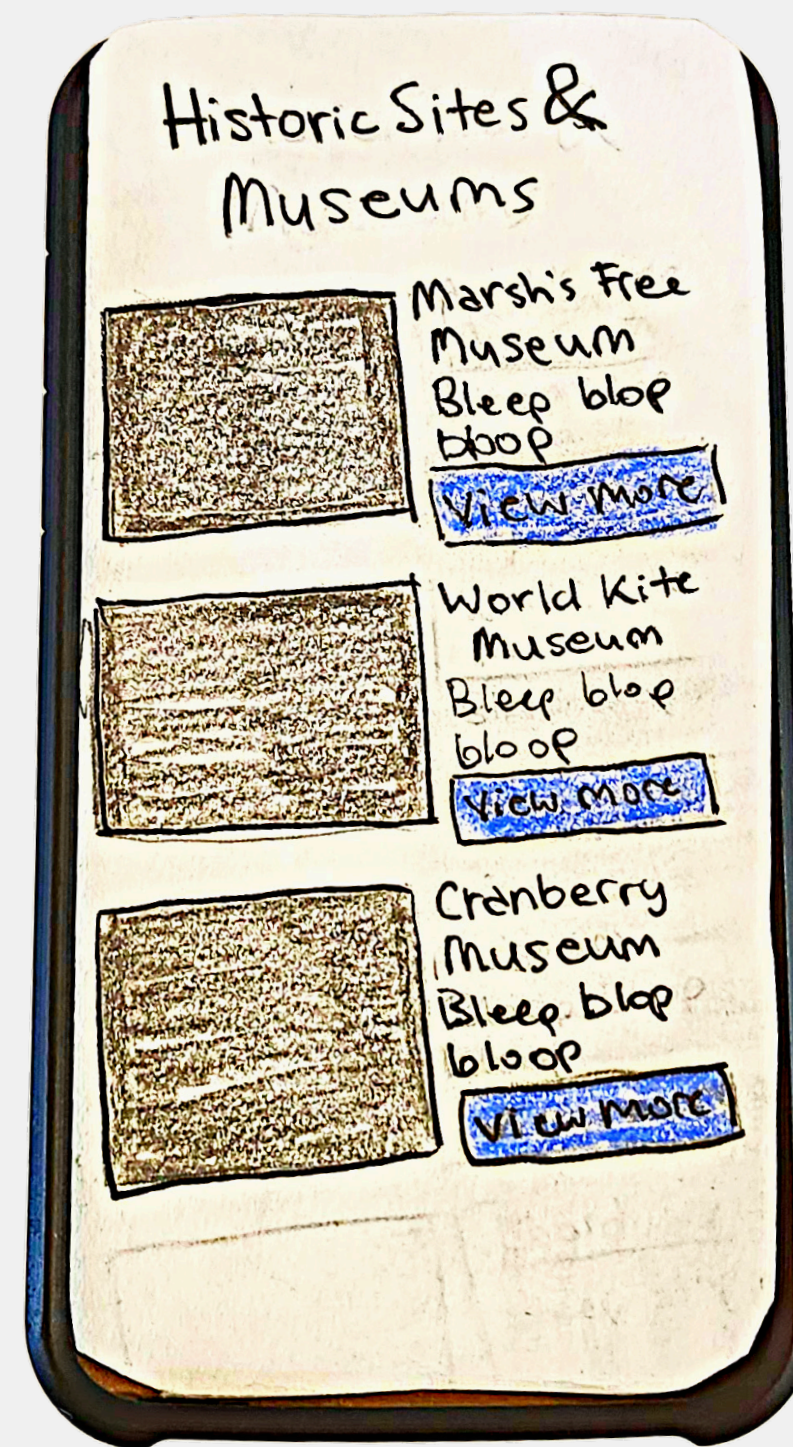 Historic Sites &
Museums
Marsh's Free
Museum
Bleep blop
bloop
View more
World Kite
Museum
Bleep blop
bloop
View more
Cranberry
Museum
Bleep blop
bloop
View more